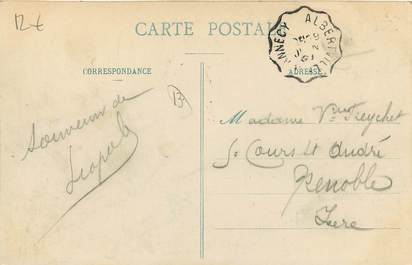 12€
CARTE POSTALE
ALBERTVILLE
ANNECY
CORRESPONDANCE
ADRESSE
Souvenir de
Leopold
Madame Vve Peychet
Cours St André
Grenoble
Isere